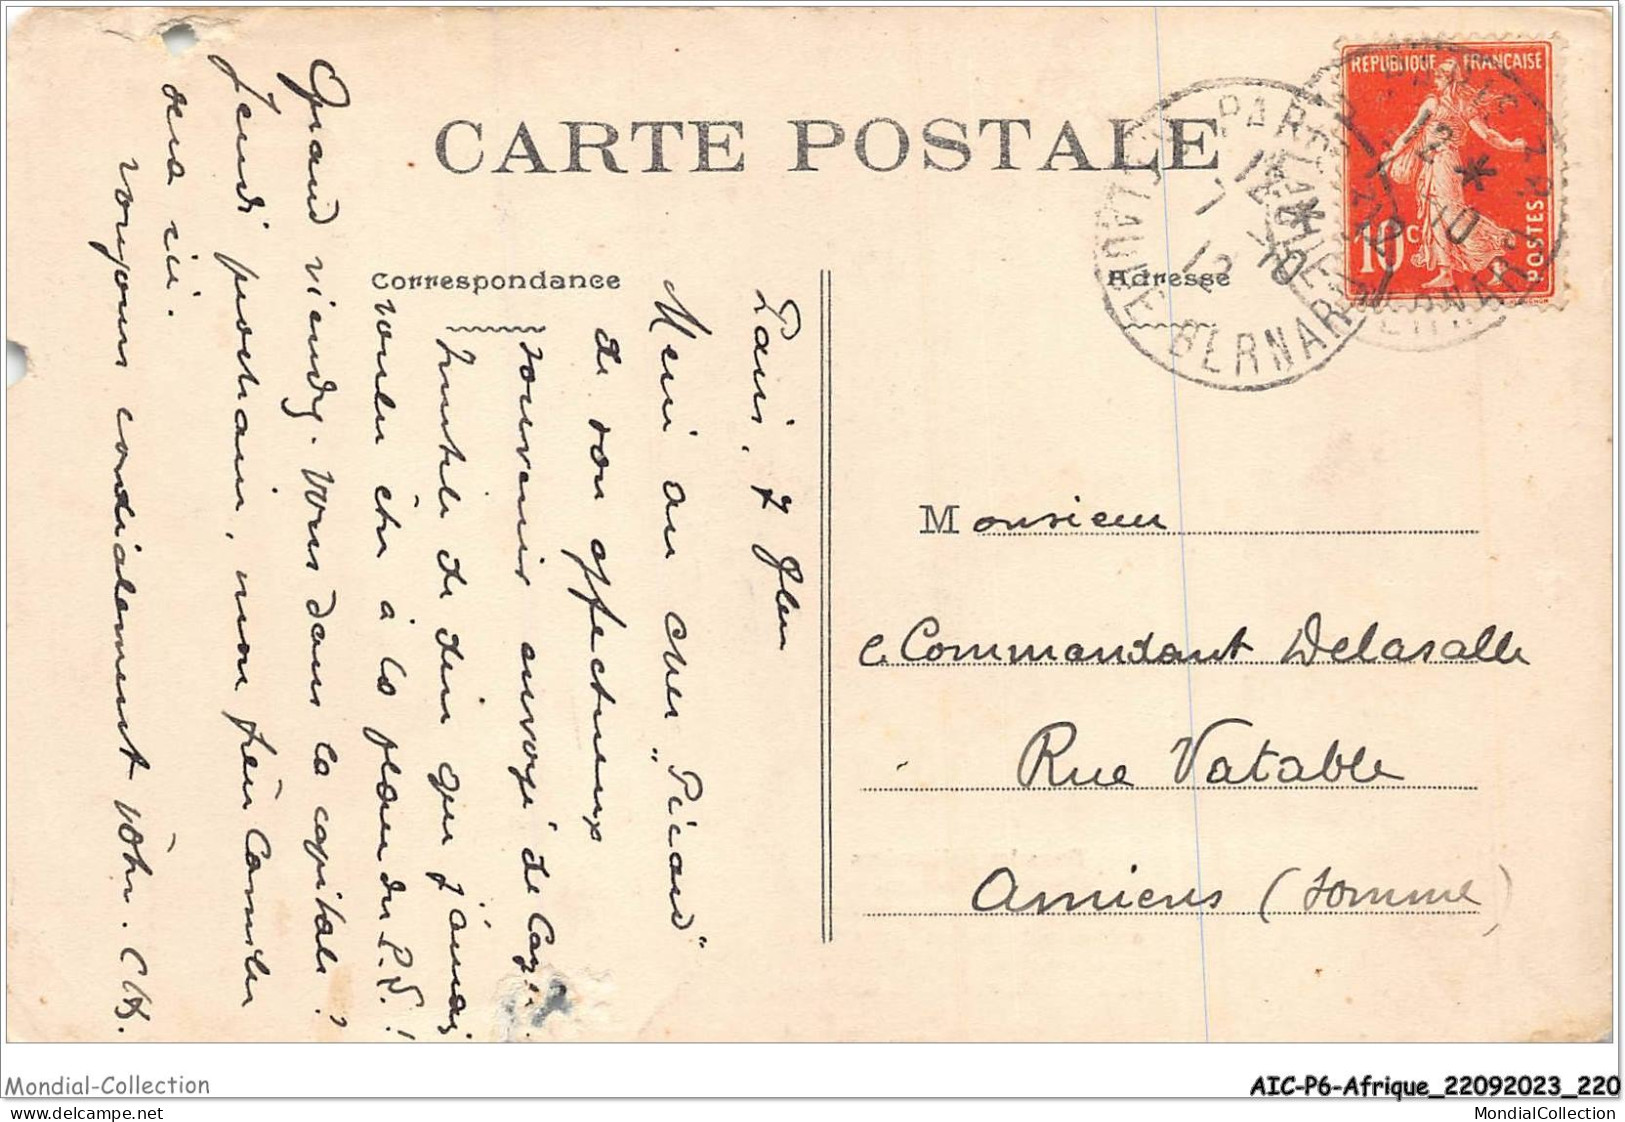 CARTE POSTALE
Correspondance
Adresse
REPUBLIQUE FRANÇAISE
10c
POSTES
Paris, 7
Merci au cher "Picard"
de son affectueux
souvenir envoyé de
Inutile de dire que j'aurais
voulu être à la place du P.S.!
Quand viendrez-vous dans la capitale?
Jeudi prochain, mon frère Camille
sera ici.
Toujours cordialement vôtre. CH.
Monsieur
le Commandant Delasalle
Rue Vatable
Amiens (Somme)
Mondial-Collection
AIC-P6-Afrique_22092023_220
delcampe.net
MondialCollection